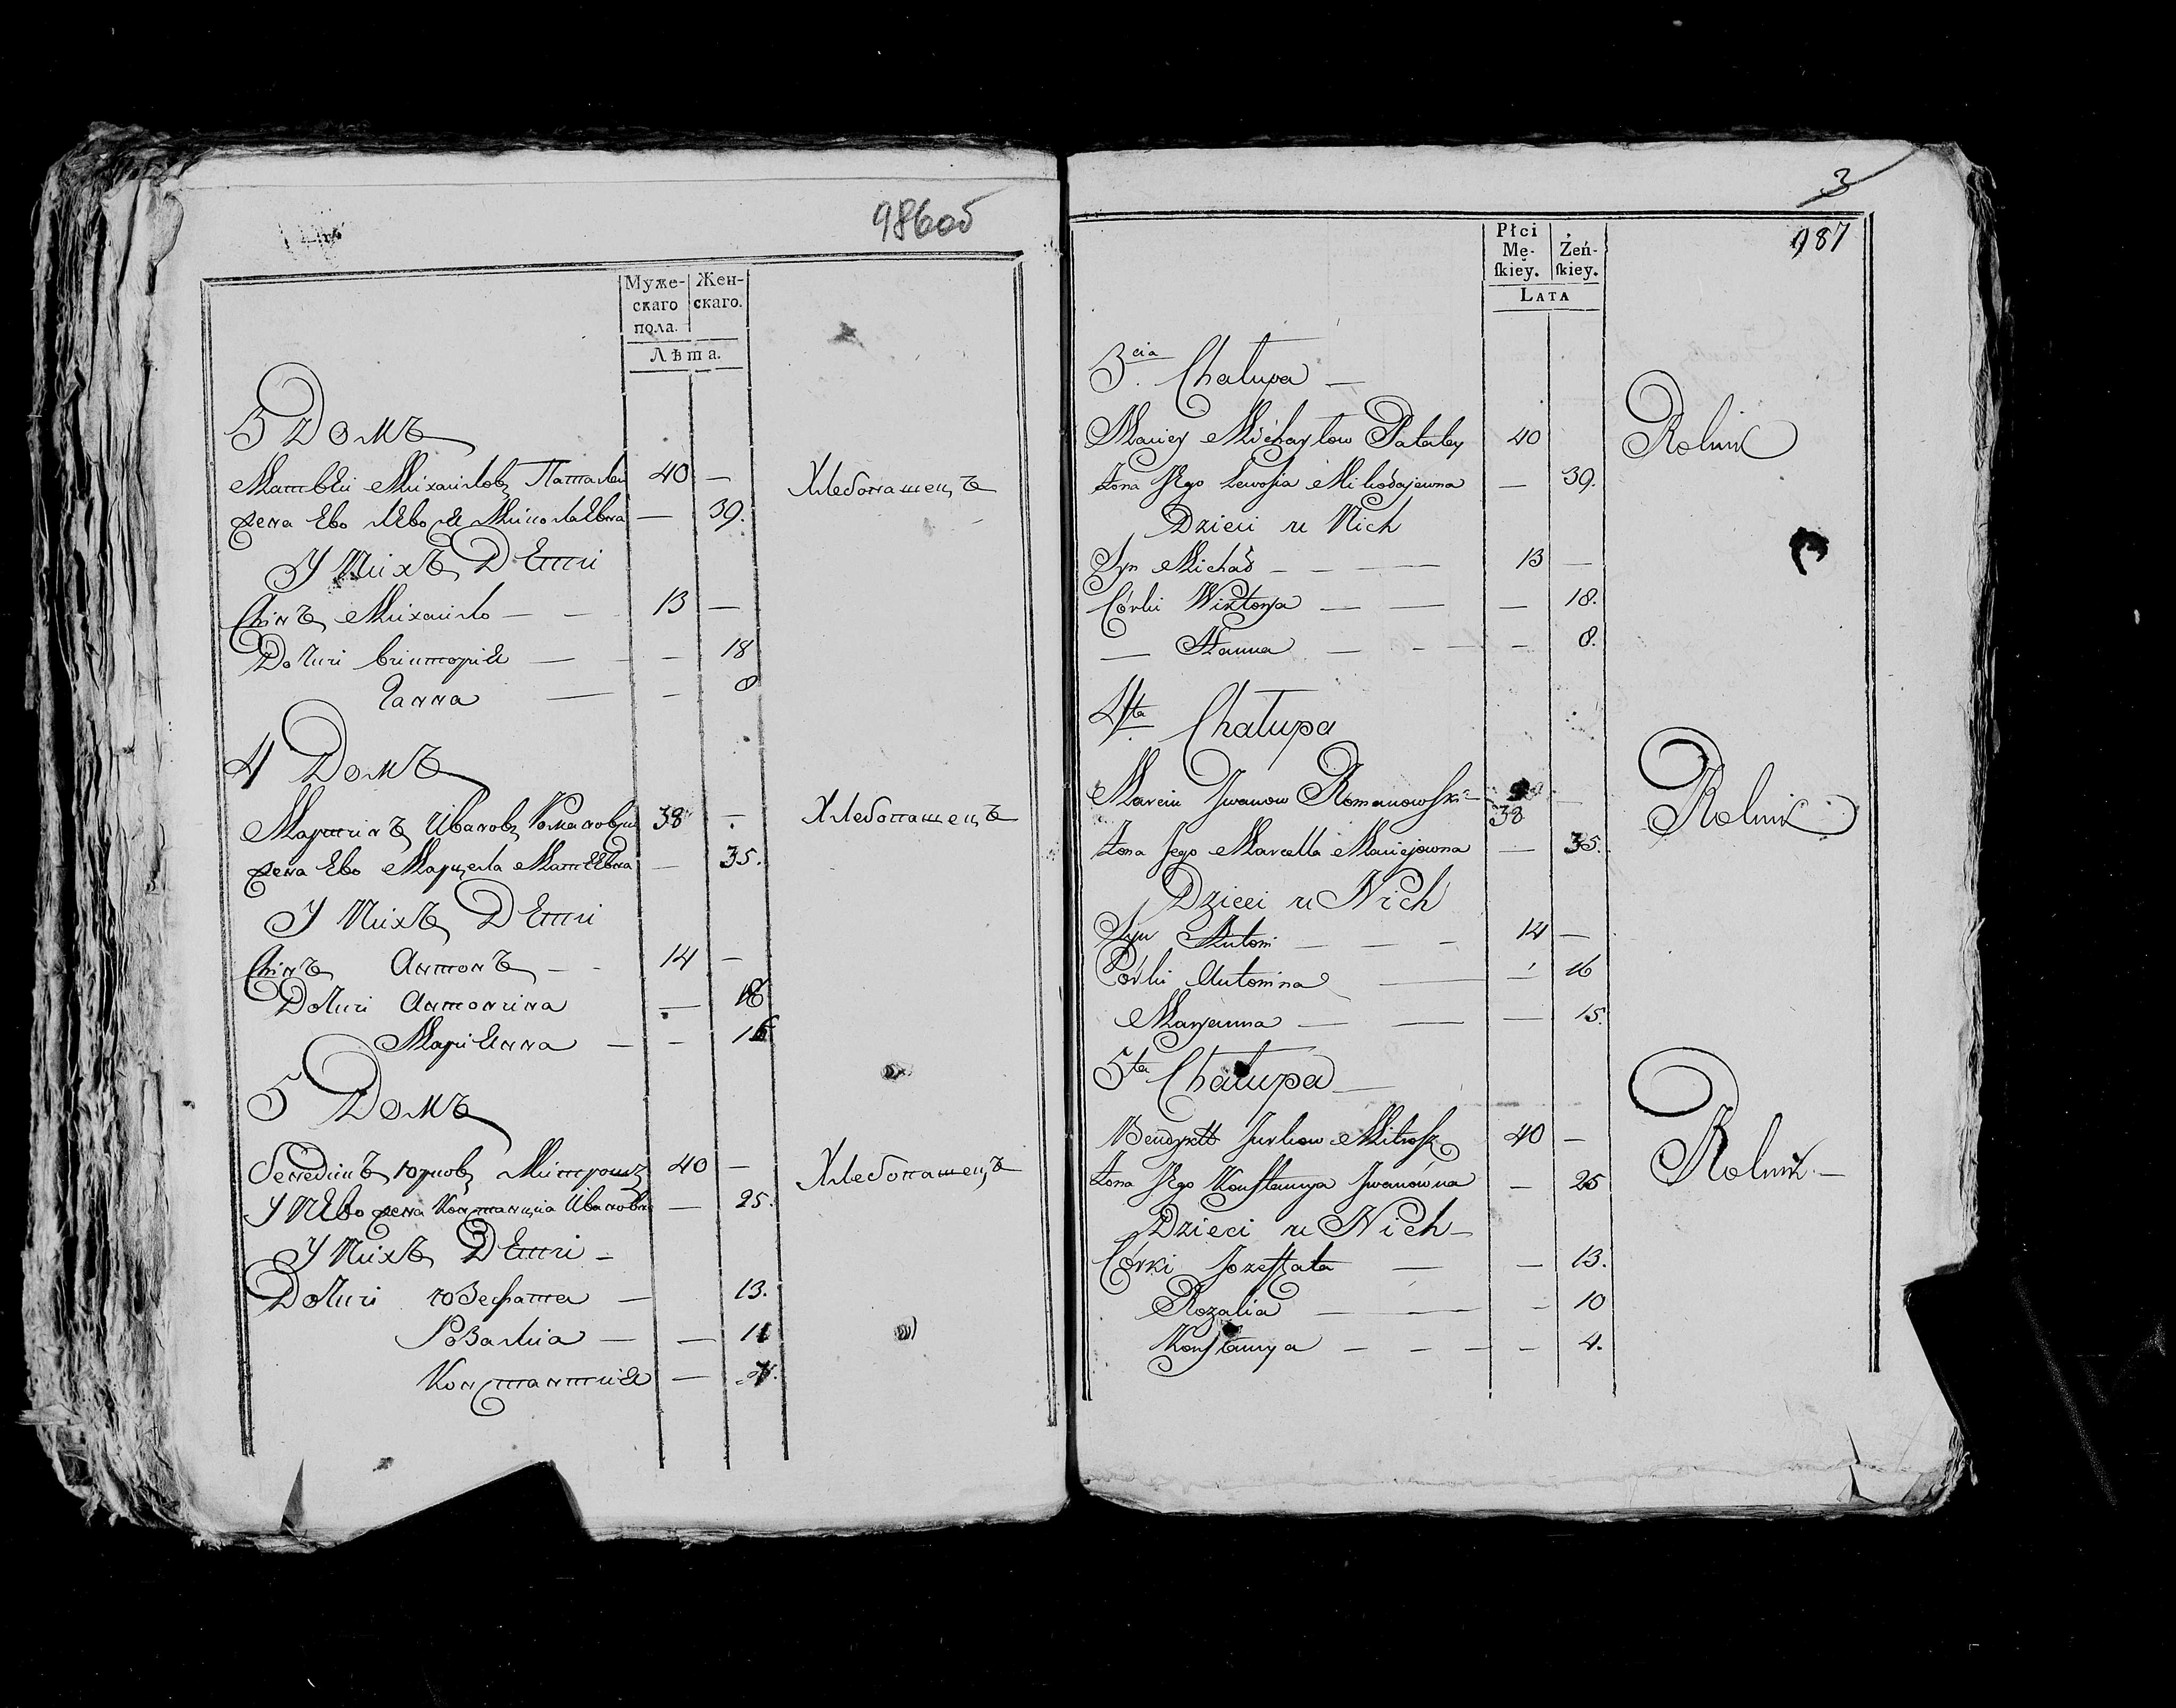 986об
Муже-
скаго
пола.
Жен-
скаго.
Лѣта.
3 Домъ
Матвеи Михаиловъ Паталеи 40 — Хлебопашецъ
жена Ево Миколаевна — 39.
У Нихъ Дети
Синъ Михаило — — 13 —
Дочки викторыя — — — 18
Ганна — — 8
4 Домъ
Мартинъ Ивановъ Романовъски 38 — Хлебопашецъ
жена Ево Марцела Матеевна — 35.
У Нихъ Дети
Синъ Антонъ — 14 —
Дочки Антонина — 16
Марианна — — 15
5 Домъ
бенедиктъ юрковъ Митрошъ 40 — Хлебопашецъ
У Нево жена Констанциа Ивановна — 25.
У Нихъ Дети —
Дочки юзефата — 13.
Розалиа — — 11
Константия — 4.
3
987
Płci
Mę-
ſkiey.
Żeń-
ſkiey.
LATA
3cia Chałupa —
Maciey Michayłow Pataley 40 Rolnik
Żona Jego Mikołajewna — 39.
Dzieci u Nich
Syn Michał — — — 13 —
Córki Wiktorya — — — 18.
— Hanna — — — 8.
4ta Chałupa
Marcin Jwanow Romanowski — 38 — Rolnik
Żona Jego Marcella Maciejowna — 35.
Dzieci u Nich
Syn Antoni — — — 14 —
Córki Antonina — — 16
Maryanna — — — 15.
5ta Chałupa —
Benedykt Jurkow Mitrosz 40 — Rolnik —
Żona Jego Konstancya Jwanówna — 25
Dzieci u Nich —
Córki Jozefata — — 13.
Rozalia — — — 10
Konstancya — — — — 4.